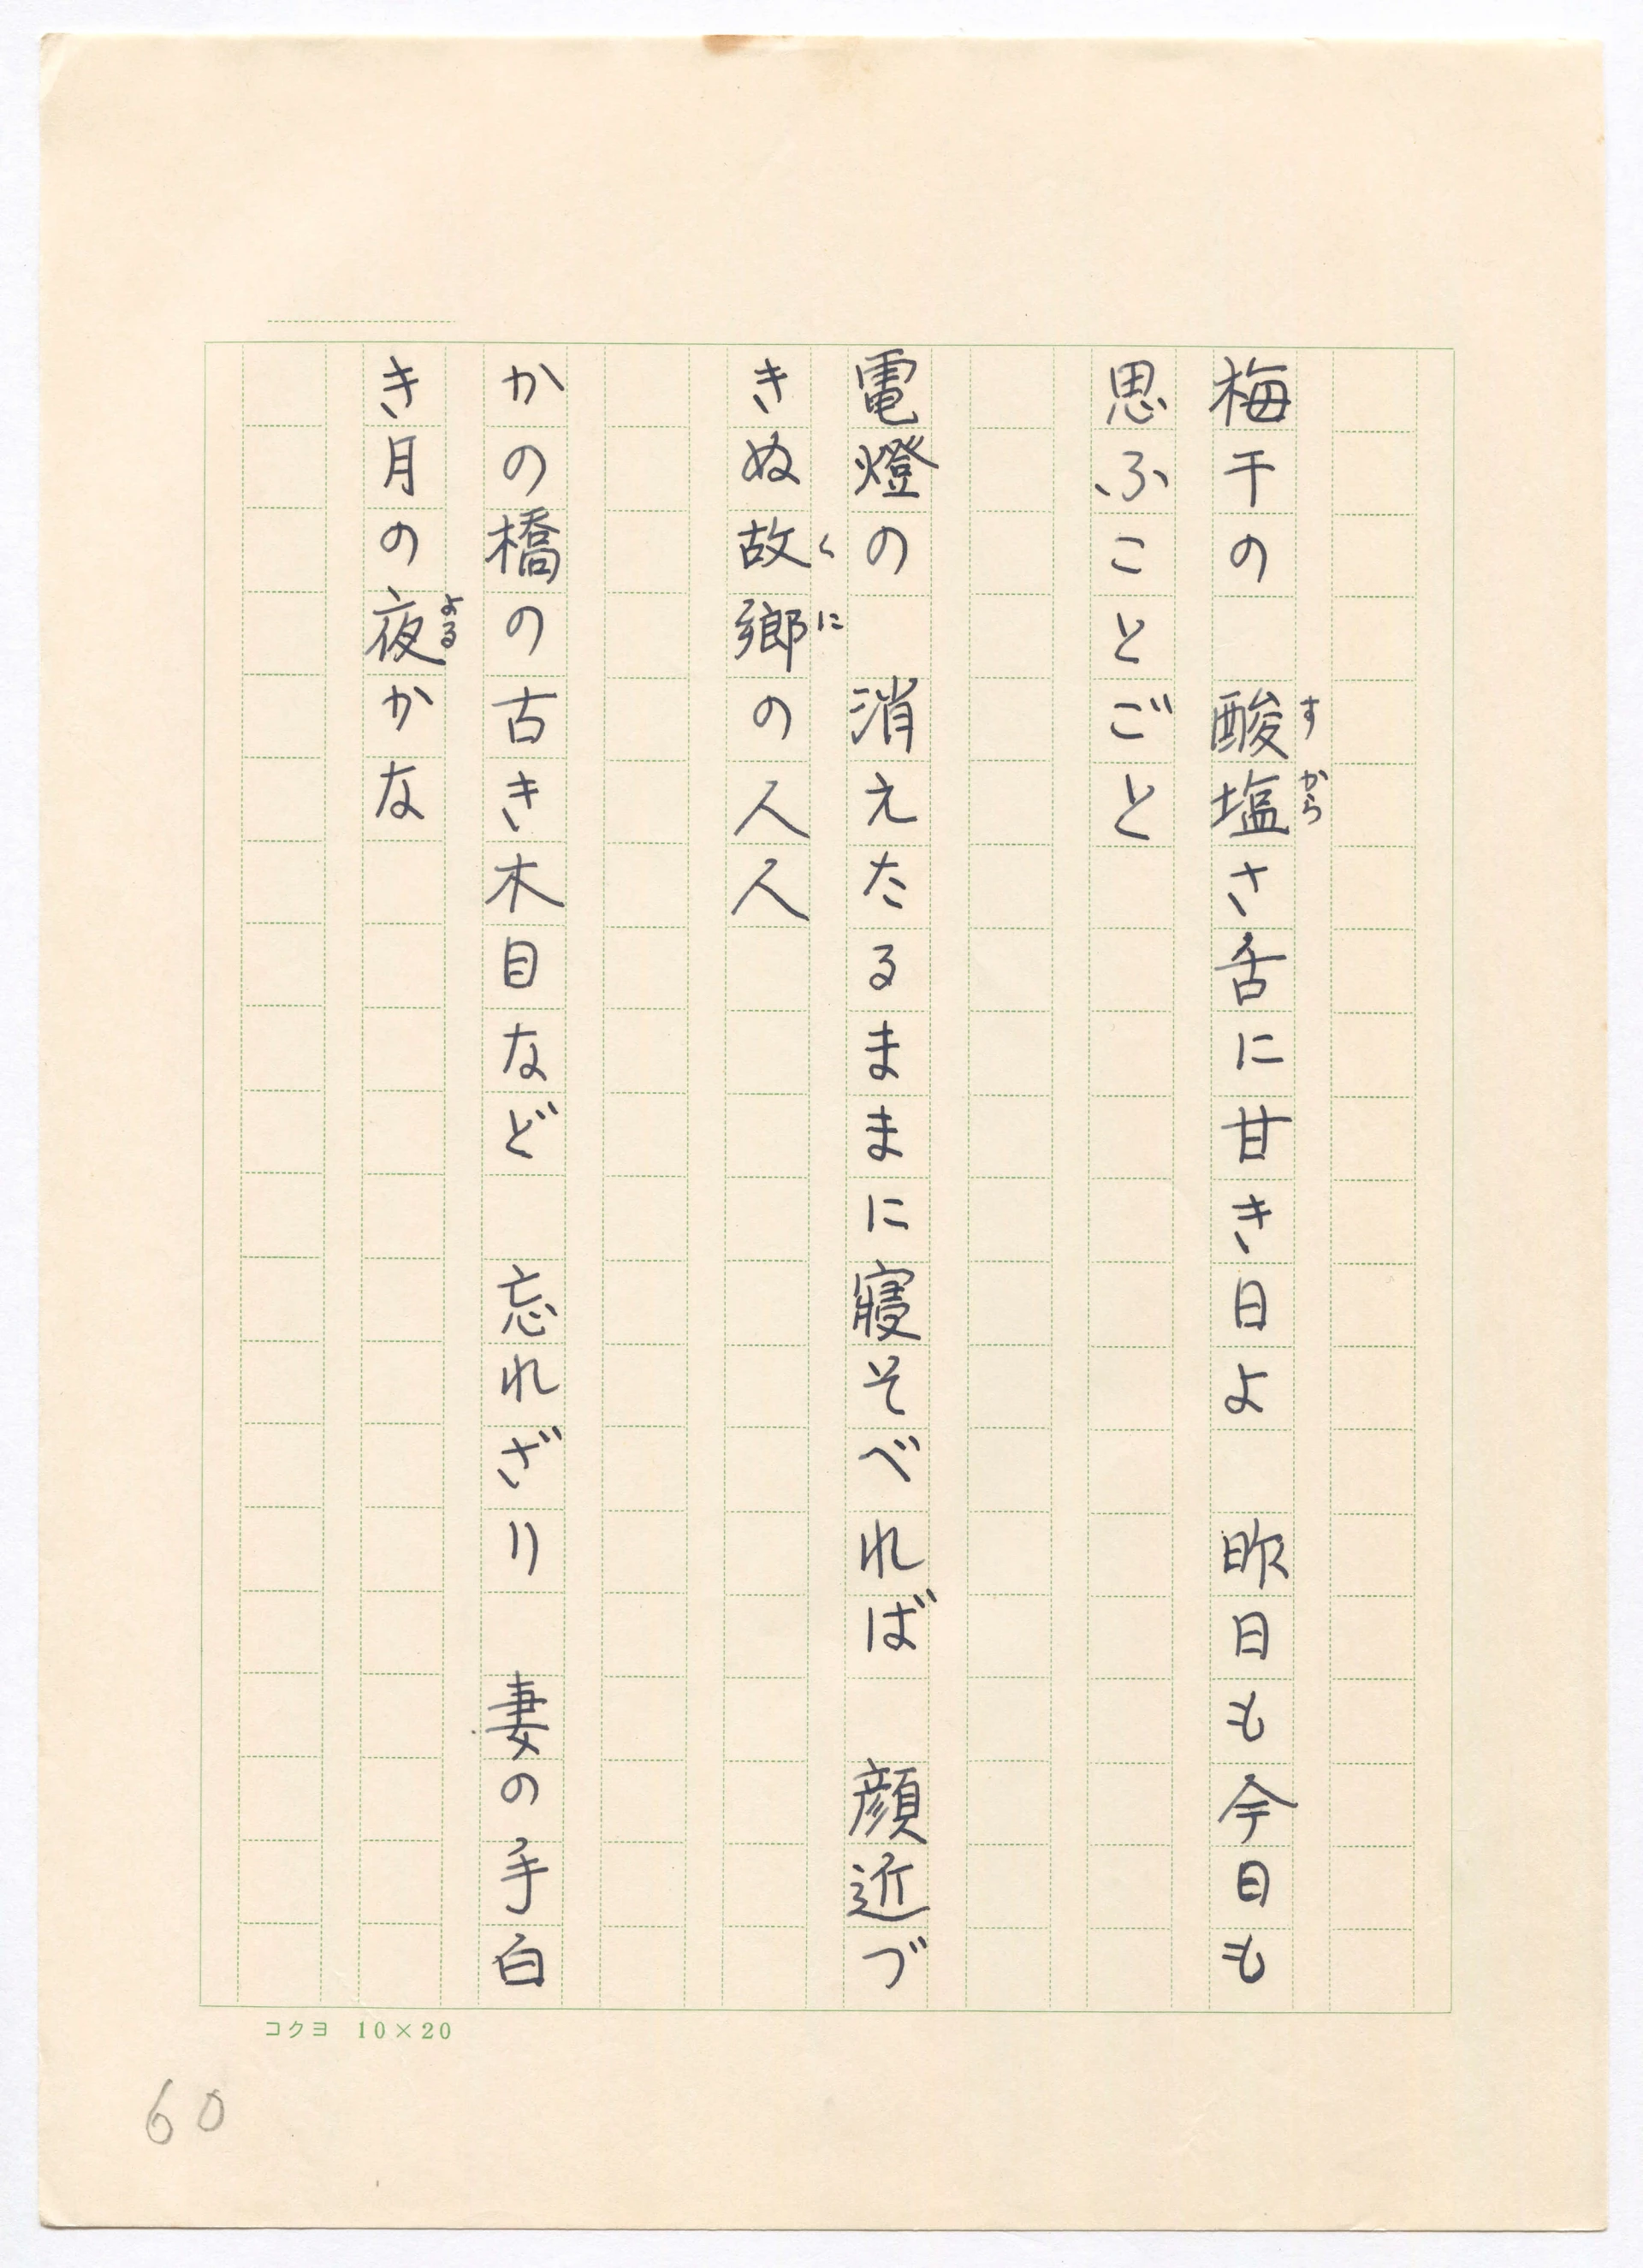 梅干の　酸塩さ舌に甘き日よ　昨日も今日も
すから
思ふことごとと
電燈の　消えたるままに寝そべれば　顔近づ
きぬ故郷の人人
くに
かの橋の古き木目など　忘れざり　妻の手白
き月の夜かな
よる
コクヨ 10×20
60